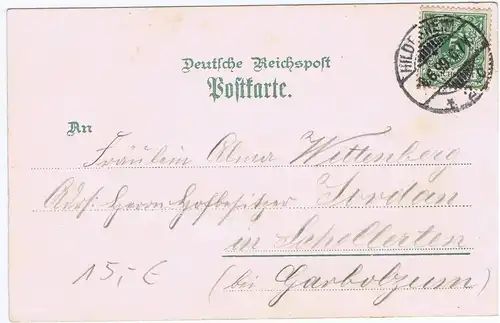 HILDESHEIM
Deutsche Reichspost
Postkarte.
An
Fräulein Alma Wittenberg
Adr: Herrn Hofbesitzer Jordan
in Schellerten
(bei Garbolzum)
15,- €